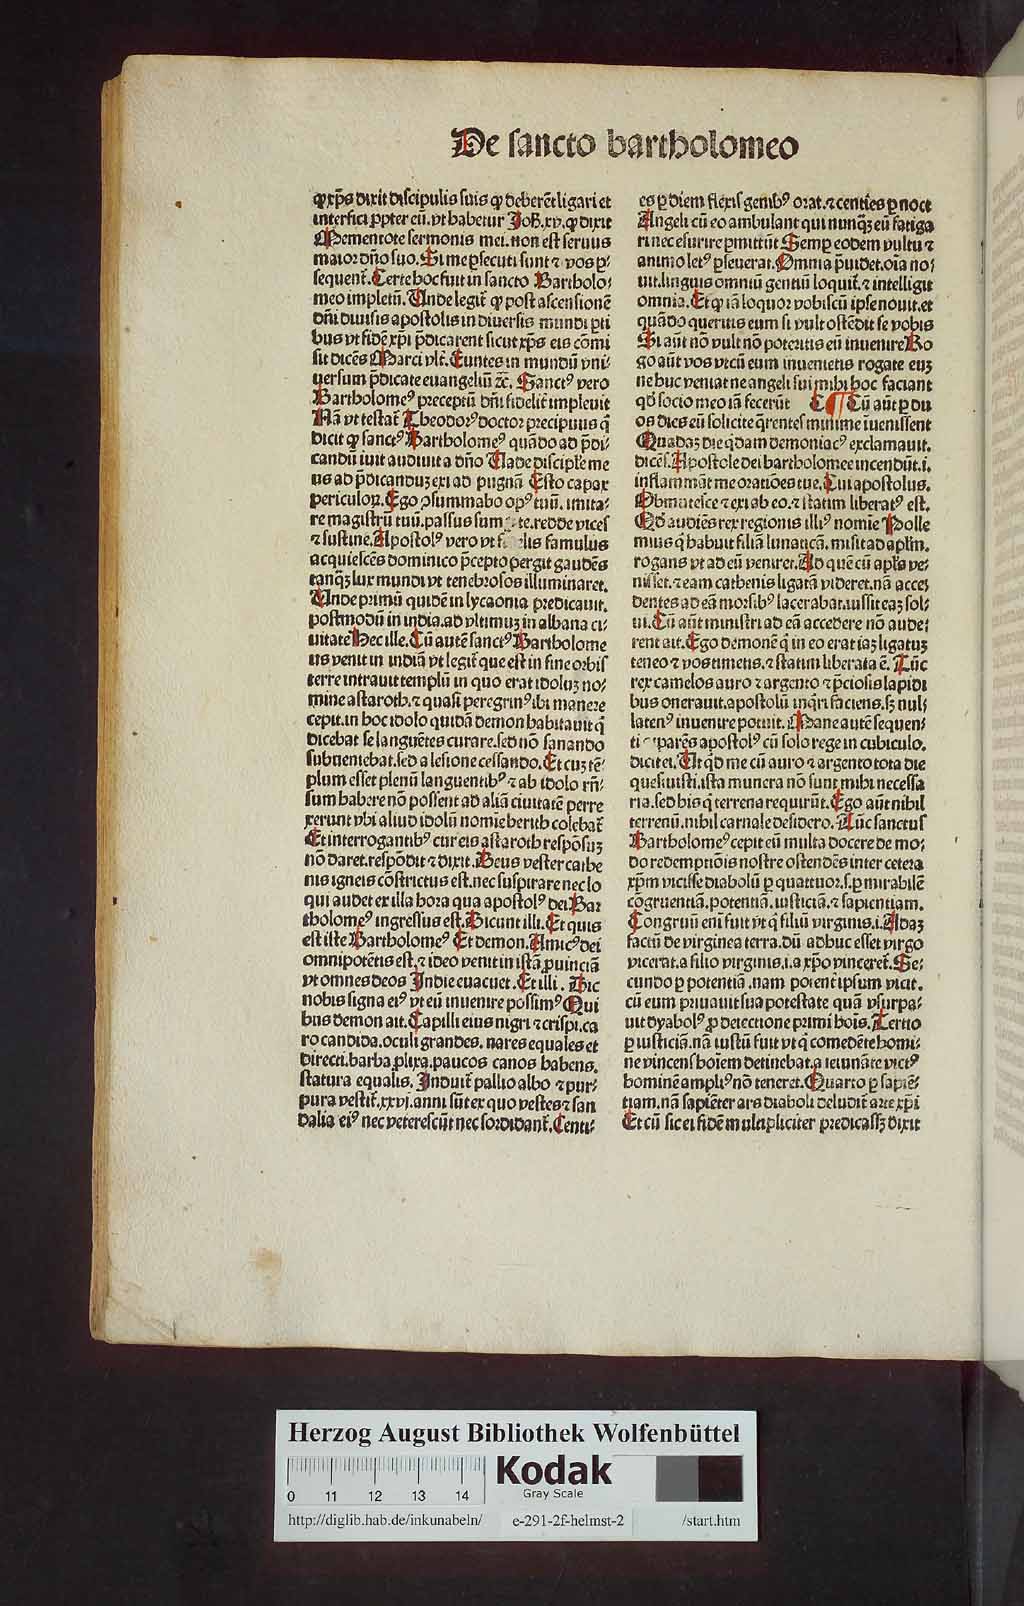 De sancto bartholomeo
ꝙ xp̄s dixit discipulis suis ꝙ deberēt ligari et
interfici ꝓpter eū. vt habetur Joħ. xv. ꝙ dixit
Mementote sermonis mei. non est seruus
maior dn̄o suo. Si me ꝑsecuti sunt ⁊ vos ꝑ⸗
sequent̄. Certe hoc fuit in sancto Bartholo⸗
meo impletū. Unde legit̄ ꝙ post ascensionē
dn̄i diuisis apostolis in diuersis mundi ꝑti
bus vt fidē xp̄i p̄dicarent sicut xp̄s eis cōmi
sit dicēs Marci vlt̄. Euntes in mundū vni⸗
uersum p̄dicate euangeliū ⁊c̄. Sanctꝰ vero
Bartholomeꝰ preceptū dn̄i fidelit̄ impleuit
Nā vt testat̄ Theodorꝰ doctor precipuus q̄
dicit ꝙ sanctꝰ Bartholomeꝰ quādo ad p̄di⸗
candū iuit audiuit a dn̄o Uade discipłe me
us ad p̄dicanduꝫ exi ad pugnā Esto capax
periculoꝝ. Ego ꝯsummabo opꝰ tuū. imita⸗
re magistrū tuū. passus sum te. redde vices
⁊ sustine. Apostolꝰ vero vt famulus
acquiescēs dominico p̄cepto pergit gaudēs
tanq̄ꝫ lux mundi vt tenebrosos illuminaret.
Unde primū quidē in lycaonia predicauit.
postmodū in india. ad vltimuꝫ in albana ci⸗
uitate Hec ille. Cū autē sanctꝰ Bartholome
us venit in indiā vt legit̄ que est in fine orbis
terre intrauit templū in quo erat idoluꝫ no⸗
mine astaroth. ⁊ quasi peregrinꝰ ibi manere
cepit. in hoc idolo quidā demon habitauit q̄
dicebat se languētes curare. sed nō sanando
subueniebat. sed a lesione cessando. Et cuꝫ tē⸗
plum esset plenū languentibꝰ ⁊ ab idolo rn̄⸗
sum habere nō possent ad aliā ciuitatē perre
xerunt vbi aliud idolū nomīe berith colebat̄
Et interrogantibꝰ cur eis astaroth respōsuꝫ
nō daret. respōdit ⁊ dixit. Deus vester cathe
nis igneis cōstrictus est. nec suspirare nec lo
qui audet ex illa hora qua apostolꝰ dei Bar
tholomeꝰ ingressus est. Dicunt illi. Et quis
est iste Bartholomeꝰ Et demon. Amicꝰ dei
omnipotētis est. ⁊ ideo venit in istā ꝓuinciā
vt omnes deos Indie euacuet. Et illi. Dic
nobis signa eiꝰ vt eū inuenire possimꝰ Qui
bus demon ait. Capilli eius nigri ⁊ crispi. ca
ro candida. oculi grandes. nares equales et
directi. barba ꝓlixa. paucos canos habens.
statura equalis. Induit̄ pallio albo ⁊ pur⸗
pura vestit̄. xxvj. anni sūt ex quo vestes ⁊ san
dalia eiꝰ nec veterescūt nec sordidant̄. Centi⸗
es ꝑ diem flexis genibꝰ orat. ⁊ centies ꝑ noct
Angeli cū eo ambulant qui nunq̄ꝫ eū fatiga
ri nec esurire ꝑmittūt Semꝑ eodem vultu ⁊
animo letꝰ ꝑseuerat. Omnia p̄uidet. oīa no⸗
uit. linguis omniū gentiū loquit̄. ⁊ intelligit
omnia. Et ꝙ iā loquor vobiscū ipse nouit. et
quādo queritis eum si vult ostēdit se vobis
Si aūt nō vult nō potestis eū inuenire Ro
go aūt vos vt cū eum inuenietis rogate euꝫ
ne huc veniat ne angeli sui mihi hoc faciant
qd̄ socio meo iā fecerūt ¶ Cū aūt ꝑ du
os dies eū solicite q̄rentes minime īuenissent
Quadaꝫ die q̄dam demoniacꝰ exclamauit.
dicēs. Apostole dei bartholomee incendūt. i.
inflammāt me oratiōes tue. Cui apostolus.
Obmutesce ⁊ exi ab eo. ⁊ statim liberatꝰ est.
Qd̄ audiēs rex regionis illiꝰ nomīe Polle
mius q̄ habuit filiā lunaticā. misit ad apłm.
rogans vt ad eū veniret. Ad quē cū apłs ve⸗
nisset. ⁊ eam cathenis ligatā videret. nā acce⸗
dentes ad eā morsibꝰ lacerabat. iussit eaꝫ sol⸗
ui. Cū aūt ministri ad eā accedere nō aude⸗
rent ait. Ego demonē q̄ in eo erat iaꝫ ligatuꝫ
teneo ⁊ vos timetis. ⁊ statim liberata ē. Tūc
rex camelos auro ⁊ argento ⁊ p̄ciosis lapidi
bus onerauit. apostolū inq̄ri faciens. sꝫ nul⸗
latenꝰ inuenire potuit. Mane autē sequen⸗
ti parēs apostolꝰ cū solo rege in cubiculo.
dicit ei. Ut qd̄ me cū auro ⁊ argento tota die
quesiuisti. ista munera nō sunt mihi necessa
ria. sed his q̄ terrena requirūt. Ego aūt nihil
terrenū. nihil carnale desidero. Tūc sanctus
Bartholomeꝰ cepit eū multa docere de mo⸗
do redemptiōis nostre ostendēs inter cetera
xp̄m vicisse diabolū ꝑ quattuor. s. ꝑ mirabilē
cōgruentiā. potentiā. iusticiā. ⁊ sapientiam.
Congruū eni fuit vt q̄ filiū virginis. i. Adaꝫ
factū de virginea terra. dū adhuc esset virgo
vicerat. a filio virginis. i. a xp̄o vinceret̄. Se⸗
cundo ꝑ potentiā. nam potent̄ ipsum vicit.
cū eum priuauit sua potestate quā vsurpa⸗
uit dyabolꝰ ꝓ deiectione primi hoīs. Tertio
ꝑ iusticiā. nā iustū fuit vt q̄ comedēte homi⸗
ne vincens hoīem detinebat. a ieiunāte victꝰ
hominē ampliꝰ nō teneret. Quarto ꝑ sapiē⸗
tiam. nā sapiēter ars diaboli deludit̄ arte xp̄i
Et cū sic ei fidē multipliciter predicassꝫ dixit
Herzog August Bibliothek Wolfenbüttel
Kodak
Gray Scale
0 11 12 13 14
http://diglib.hab.de/inkunabeln/ e-291-2f-helmst-2 /start.htm